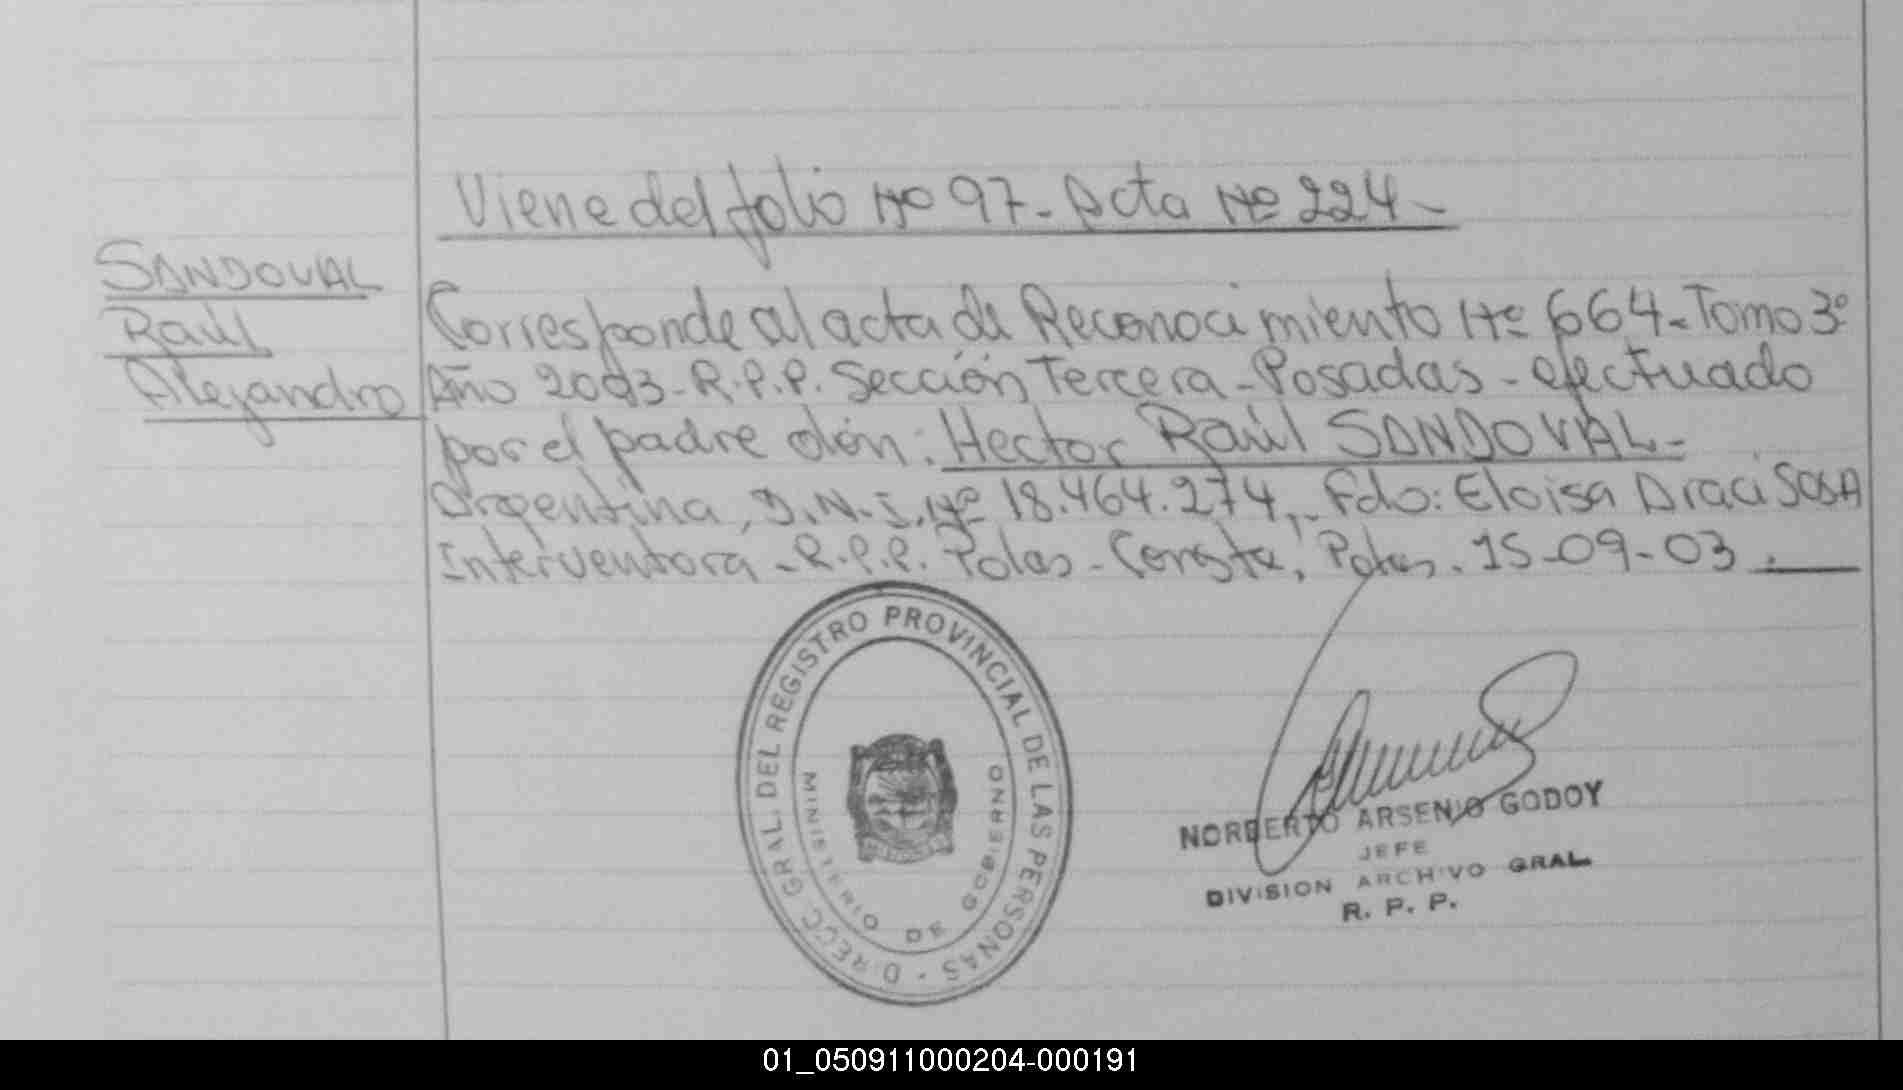 Viene del folio Nº 97- Acta Nº 224-
SANDOVAL
Raúl
Alejandro
Corresponde al acta de Reconocimiento Nº 664- Tomo 3º
Año 2003- R.P.P. Sección Tercera - Posadas - efectuado
por el padre don: Hector Raúl SANDOVAL-
Argentina, D.N.I. Nº 18.464.274,- Fdo: Eloisa Draci SOSA
Interventora - R.P.P. Pdas - Consta, Pdas. 15-09-03.
DIRECC. GRAL. DEL REGISTRO PROVINCIAL DE LAS PERSONAS -
MINISTERIO DE GOBIERNO
NORBERTO ARSENIO GODOY
JEFE
DIVISION ARCHIVO GRAL
R. P. P.
01_050911000204-000191